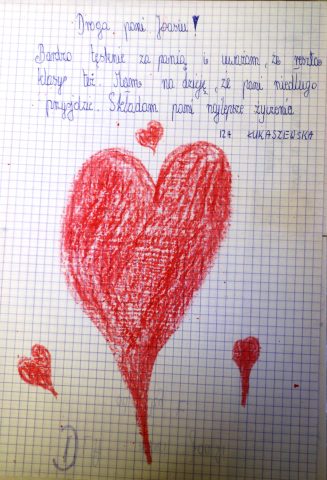 Droga pani Joasiu!
Bardzo tęsknię za panią i uważam, że reszta
klasy też. Mam na dzieję, że pani niedługo
przyjdzie. Składam pani najlepsze życzenia
IZA ŁUKASZEWSKA